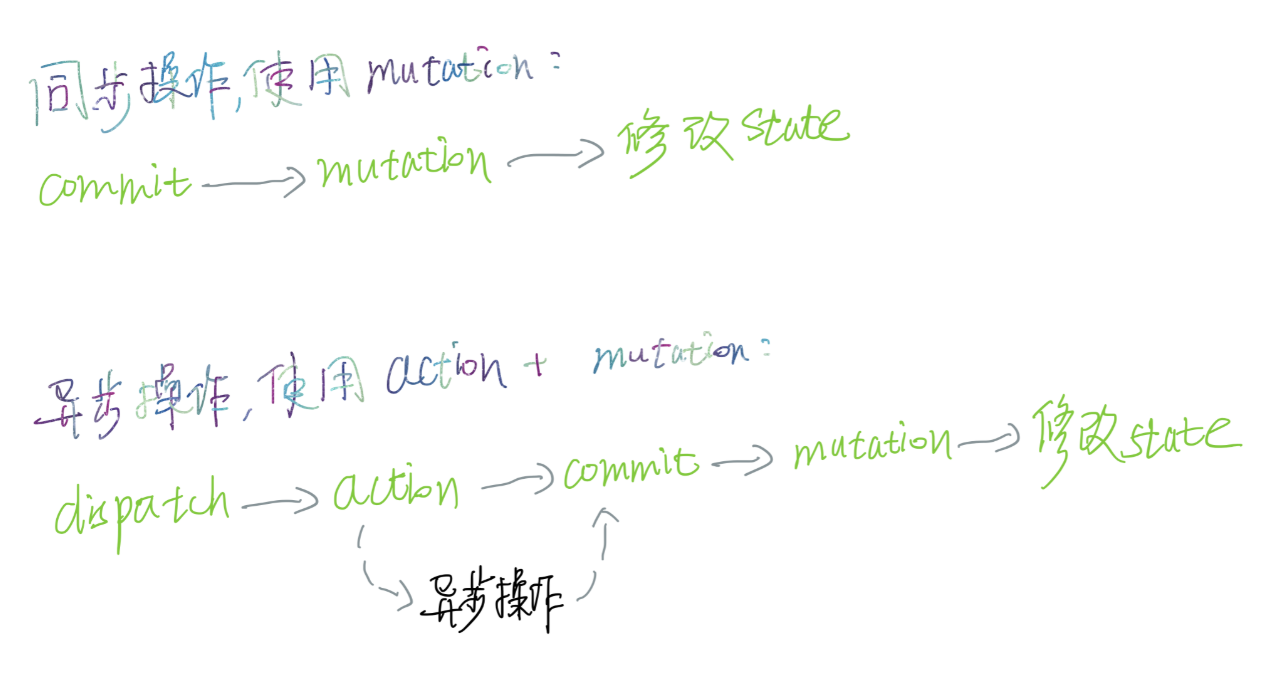 同步操作,使用mutation:
commit → mutation → 修改state
异步操作,使用action + mutation:
dispatch → action → commit → mutation → 修改state
异步操作